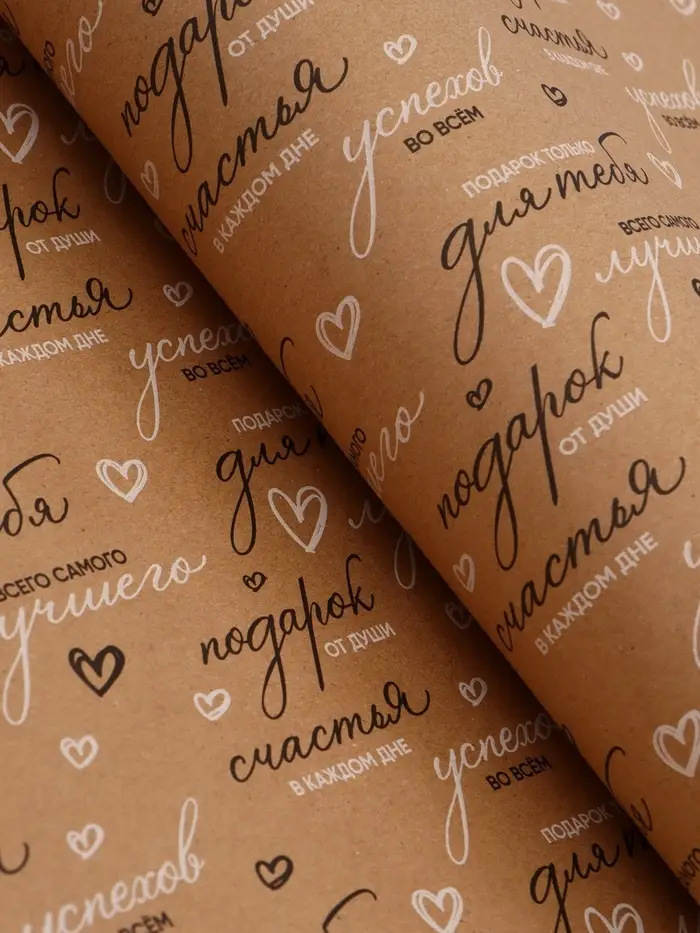 подарок
ОТ ДУШИ
счастья
В КАЖДОМ ДНЕ
успехов
ВО ВСЁМ
счастья
В КАЖДОМ ДНЕ
успехов
ВО ВСЁМ
ПОДАРОК ТОЛЬКО
для тебя
ВСЕГО САМОГО
подарок
ОТ ДУШИ
счастья
В КАЖДОМ ДНЕ
ОТ ДУШИ
КАЖДОМ ДНЕ
успехов
ВО ВСЁМ
ПОДАРОК
для
ВСЕГО САМОГО
лучшего
подарок
ОТ ДУШИ
счастья
В КАЖДОМ ДНЕ
успехов
ВО ВСЁМ
ПОДАРОК
для
успехов
ВСЁМ